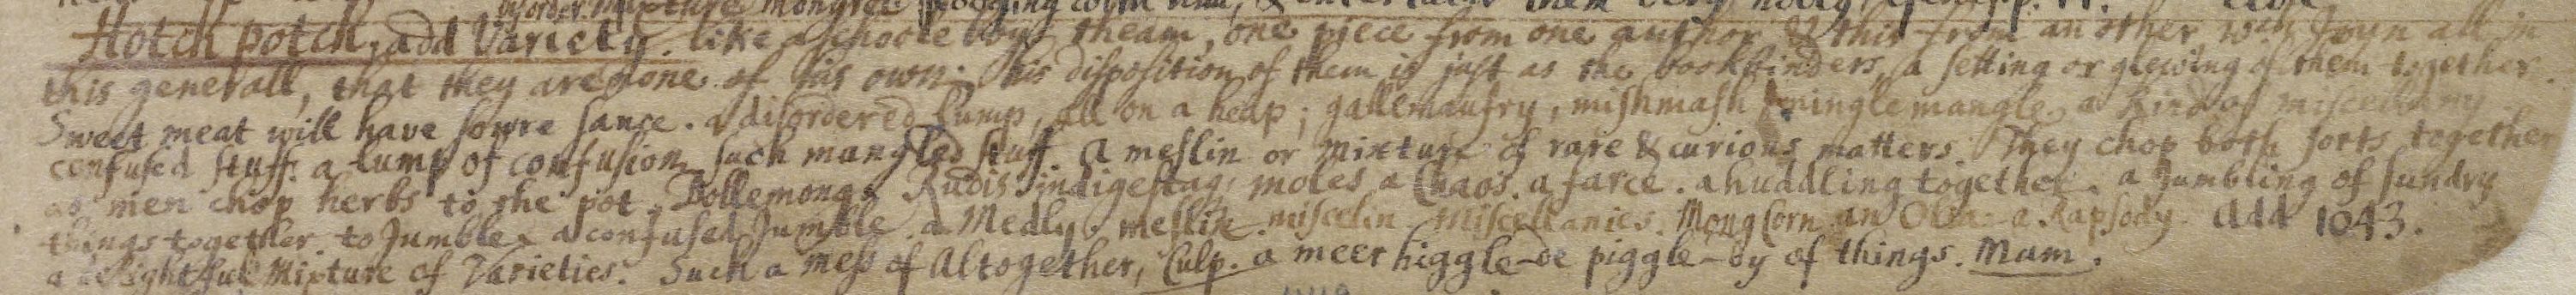 disorder. mixture, mongrel
Hotch potch, add Variety. like a schoole boys theam, one piece from one author & this from an other wch Joyn all in
this generall, that they are none of his own. his disposition of them is just as the bookbinders, a setting or glewing of them together.
Sweet meat will have sowre sauce. a disordered lump, all on a heap; gallemaufry, mishmash mingle mangle a kind of miscellany
confused stuff. a lump of confusion such mangled stuff. a meslin or mixture of rare & curious matters. They chop both sorts together
as men chop herbs to the pot. Bollemong. Rudis indigestaq; moles a Chaos. a farce. a huddling together. a Jumbling of sundry
things together. to Jumble. a confused Jumble. a Medly. meslin. miscelin Miscellanies. Mongcorn an Olia a Rapsody. Add 1043.
a delightful Mixture of Varieties. Such a mess of Altogether, Culp. a meer higgle-de piggle-dy of things. Mam.